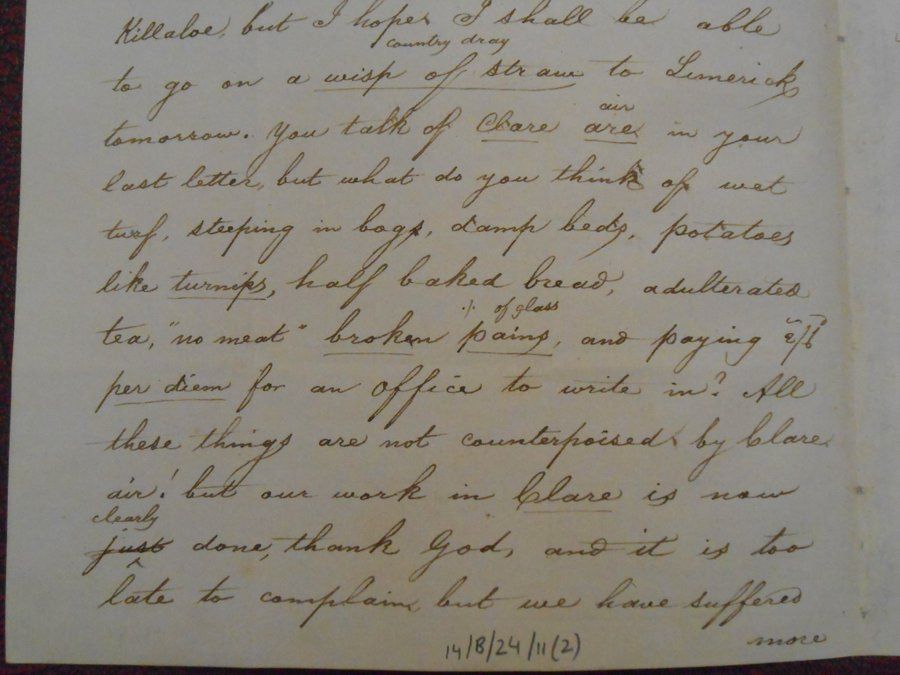 Killaloe, but I hope I shall be able
country dray
to go on a wisp of straw to Limerick
air
tomorrow. You talk of Clare are in your
last letter, but what do you think of wet
turf, steeping in bogs, damp beds, potatoes
like turnips, half baked bread, adulterated
of glass
tea, "no meat" broken pains, and paying "2/6
per diem for an office to write in? All
these things are not counterpoised by Clare
air! but our work in Clare is now
clearly
just done, thank God, and it is too
late to complain, but we have suffered
more
14/B/24/11(2)